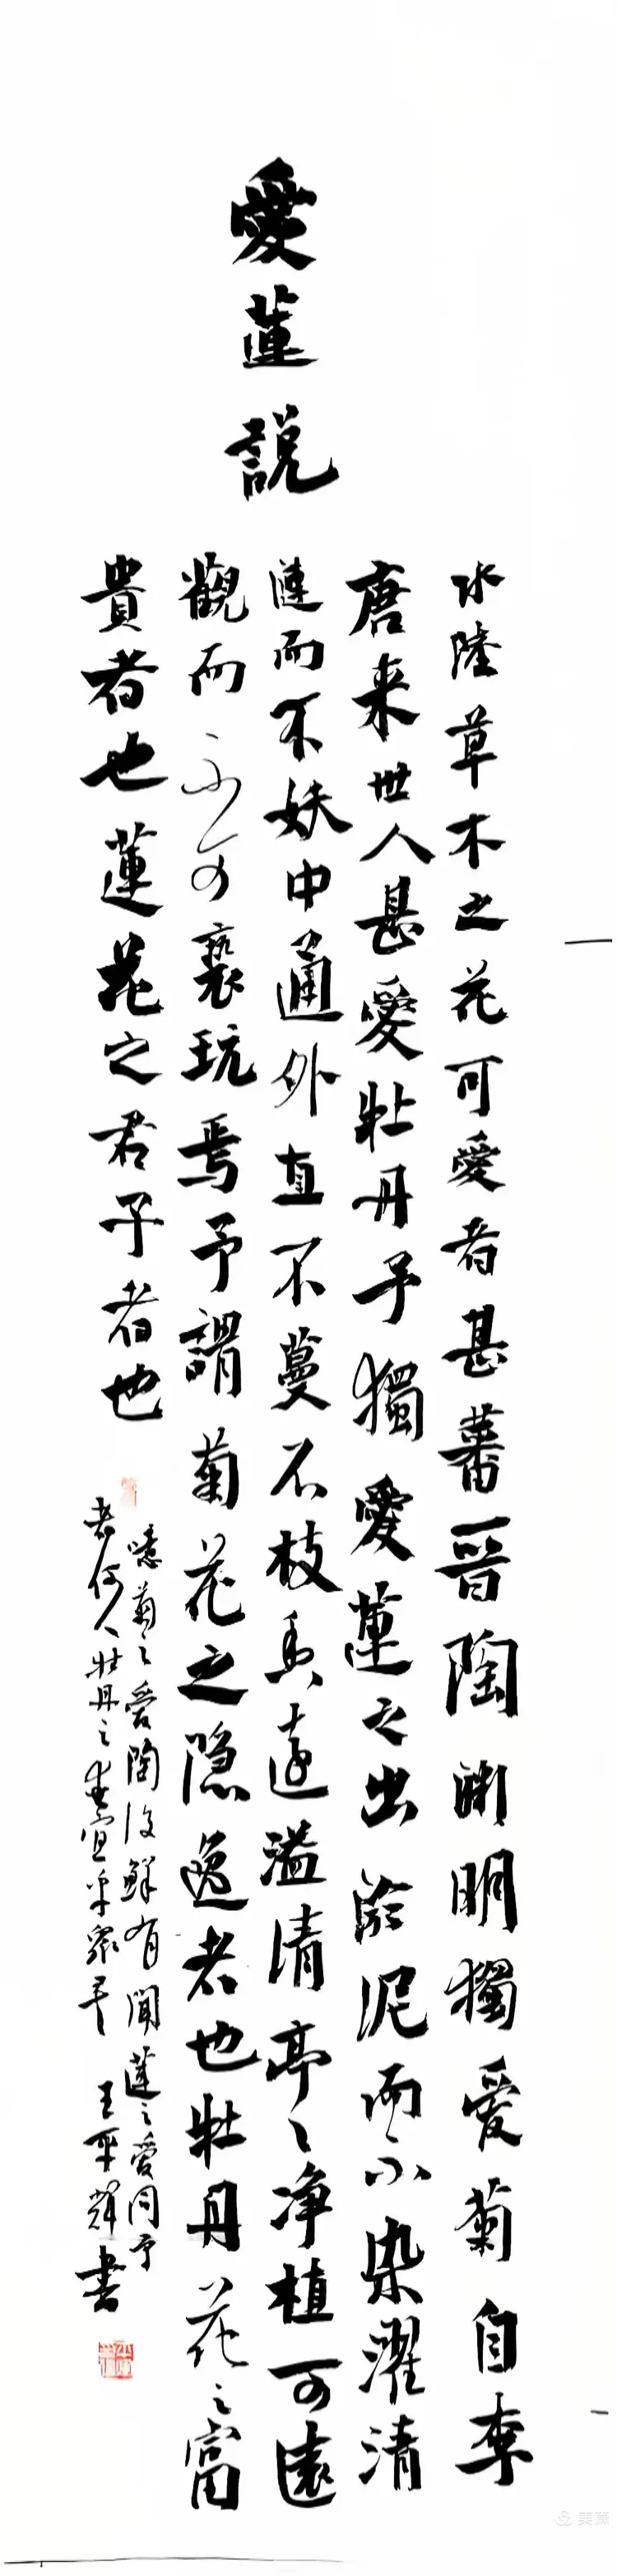 愛蓮説
水陸草木之花可愛者甚蕃晉陶淵明獨愛菊自李
唐来世人甚愛牡丹予獨愛蓮之出於泥而不染濯清
漣而不妖中通外直不蔓不枝香遠溢清亭々净植可遠
觀而不可褻玩焉予謂菊花之隐逸者也牡丹花之富
貴者也蓮花之君子者也
噫菊之愛陶後鮮有聞蓮之愛同予
者何人牡丹之愛宜乎衆矣 王平輝書
美篇